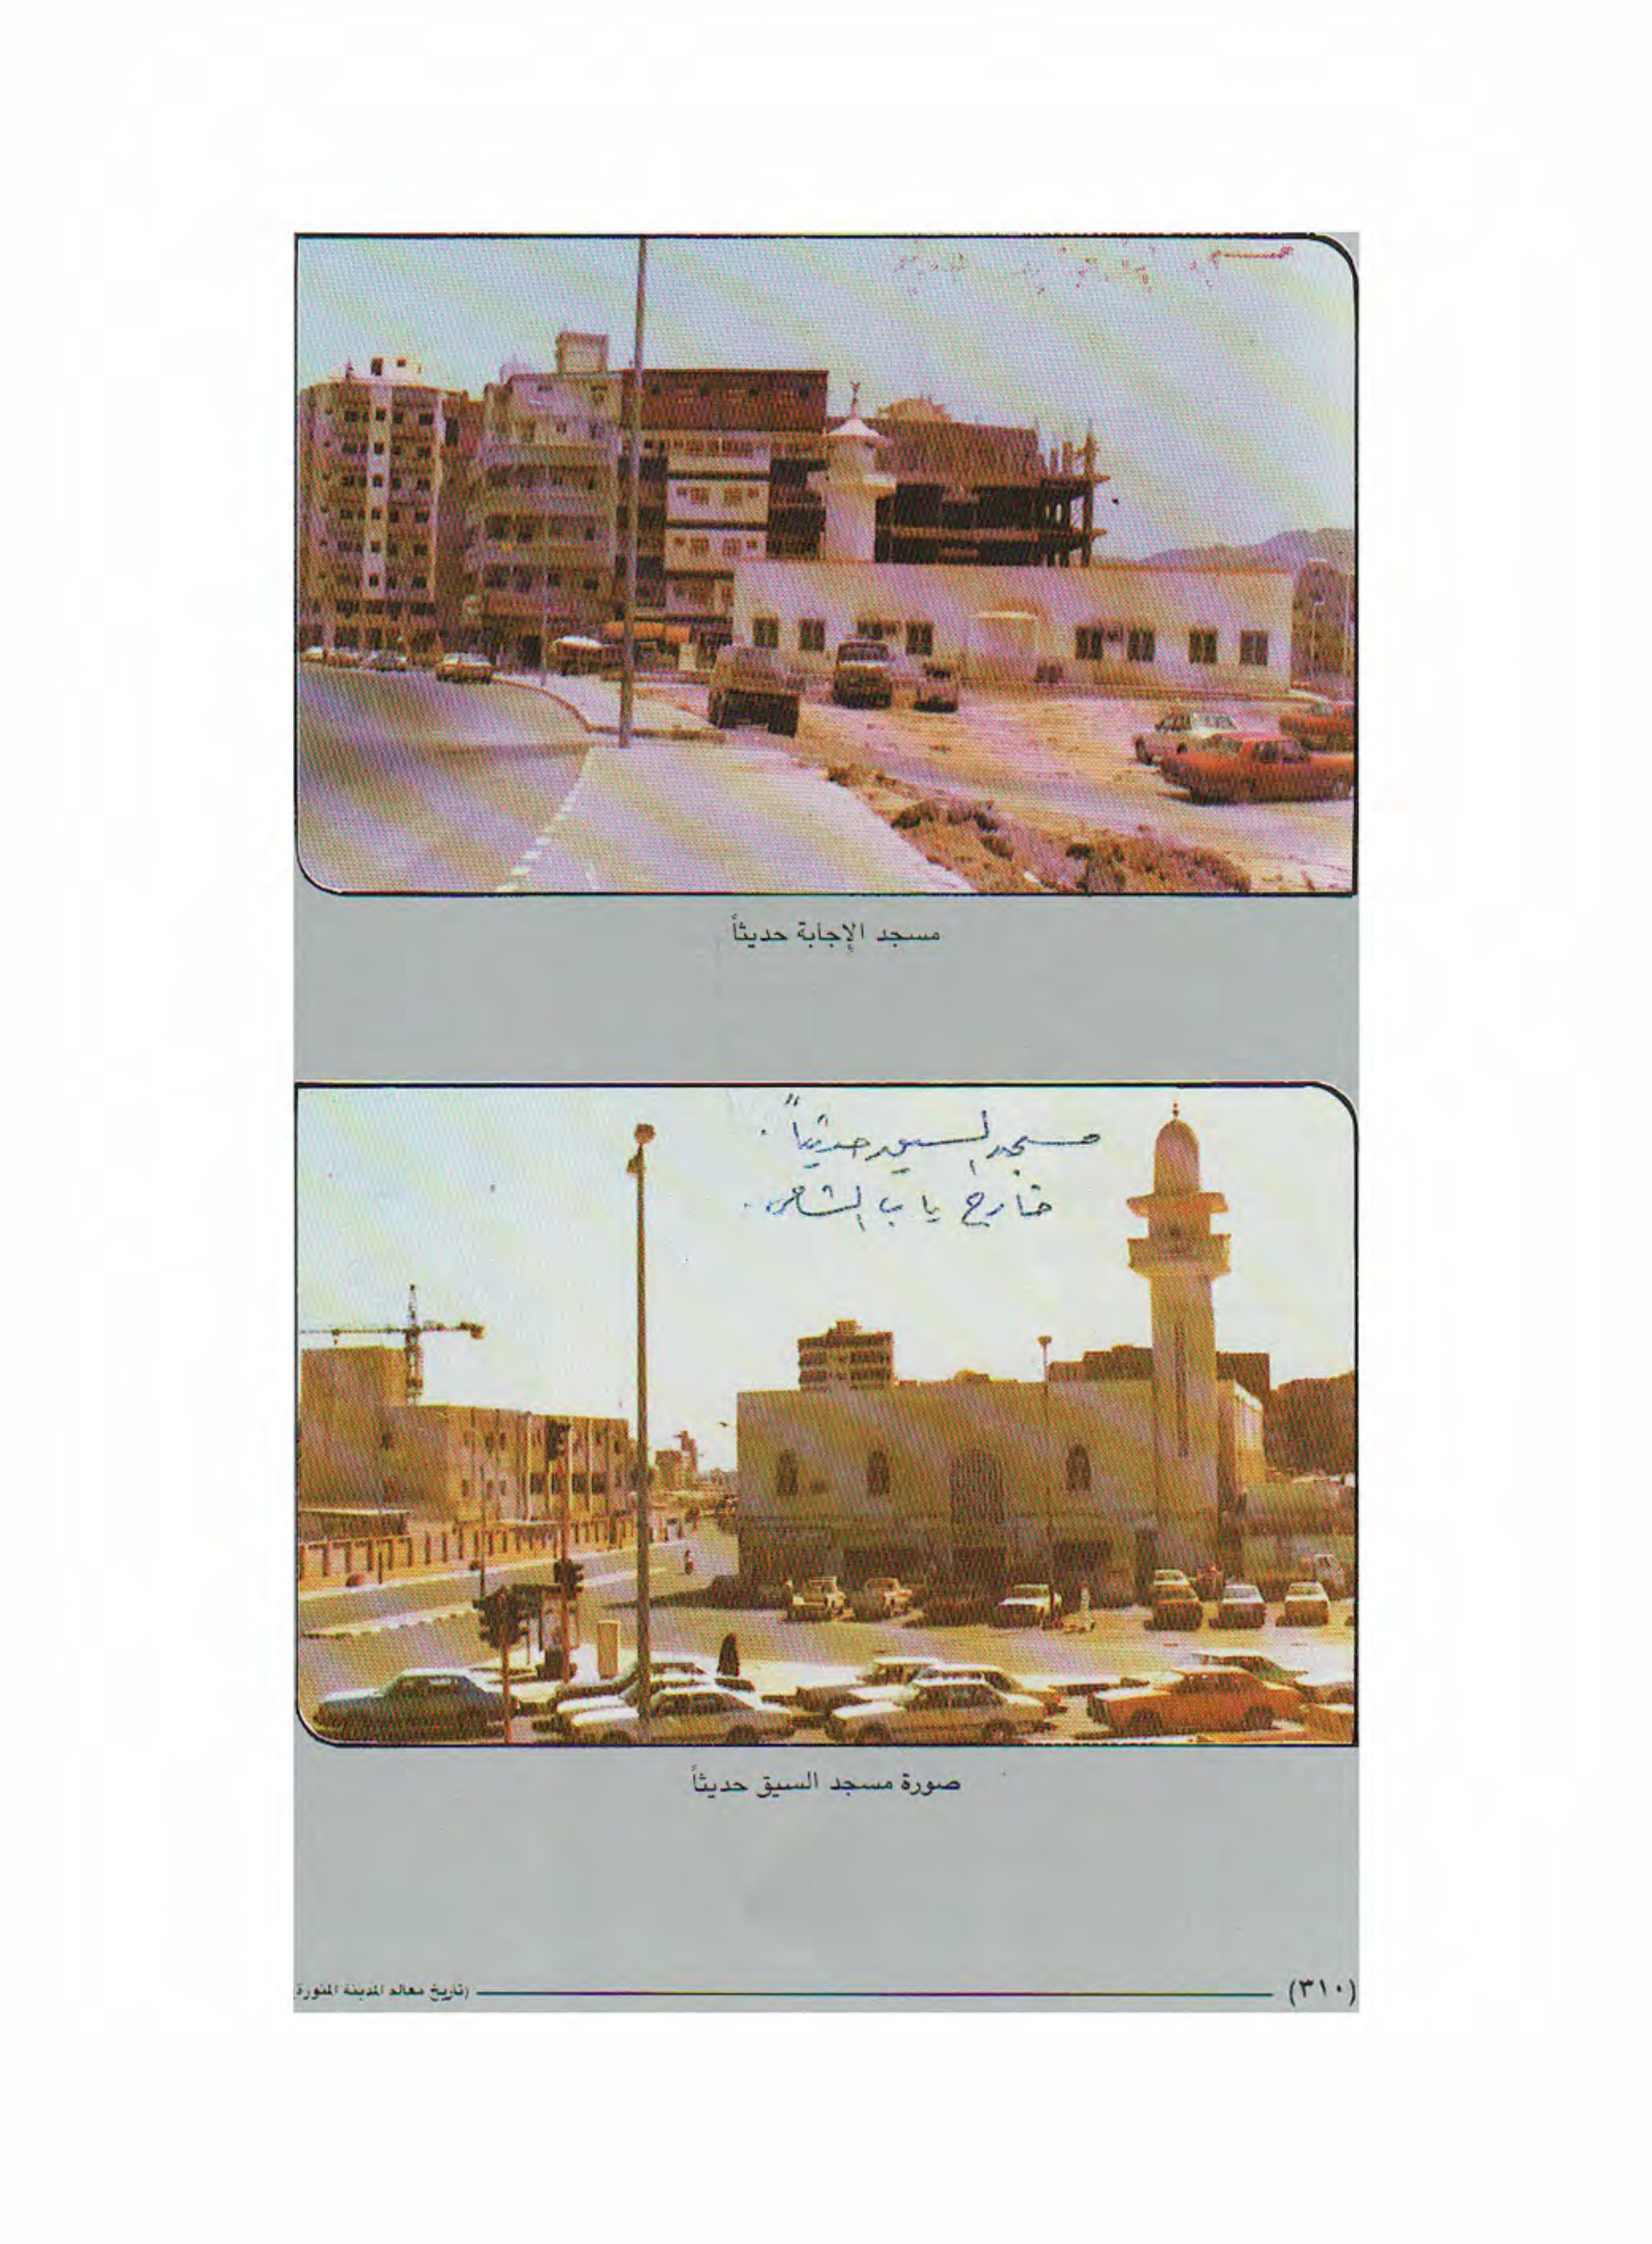 مسجد الإجابة حديثاً
مسجد السبق حديثاً .
خارج باب الشامي .
صورة مسجد السيق حديثاً
(٣١٠)
(تاريخ معالم المدينة المنورة)